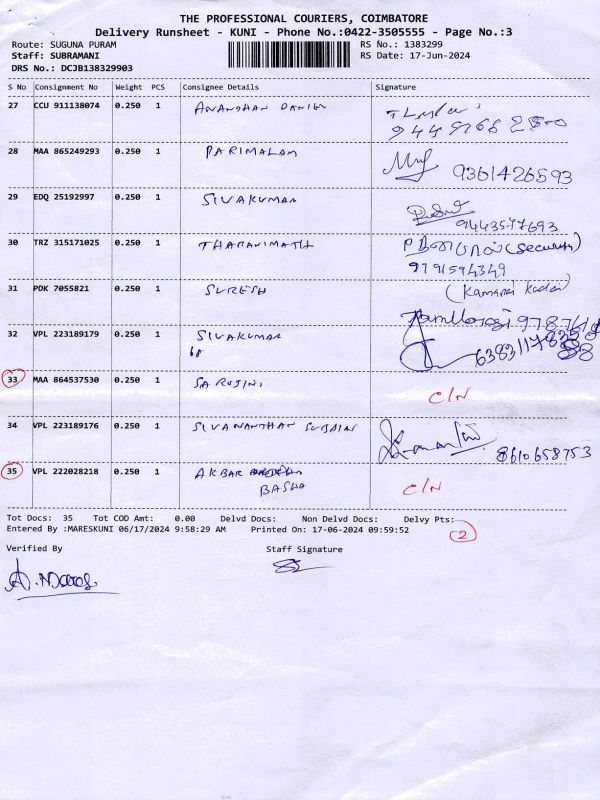 THE PROFESSIONAL COURIERS, COIMBATORE
Delivery Runsheet - KUNI - Phone No.:0422-3505555 - Page No.:3
Route: SUGUNA PURAM RS No.: 1383299
Staff: SUBRAMANI RS Date: 17-Jun-2024
DRS No.: DCJB138329903
S No Consignment No Weight PCS Consignee Details Signature
27 CCU 911138074 0.250 1 ANANDHAN DANIEL
28 MAA 865249293 0.250 1 PARIMALAM 9361426593
29 EDQ 25192997 0.250 1 SIVAKUMAR
9443577693
30 TRZ 315171025 0.250 1 THARANIMATH (Security)
9791594349
31 PDK 7055821 0.250 1 SURESH
32 VPL 223189179 0.250 1 SIVAKUMAR
33 MAA 864537530 0.250 1 SAROJINI
C/N
34 VPL 223189176 0.250 1 SIVANANTHAN
8610658753
35 VPL 222028218 0.250 1 AKBAR
BASHA C/N
Tot Docs: 35 Tot COD Amt: 0.00 Delvd Docs: Non Delvd Docs: Delvy Pts:
Entered By :MARESKUNI 06/17/2024 9:58:29 AM Printed On: 17-06-2024 09:59:52
2
Verified By Staff Signature